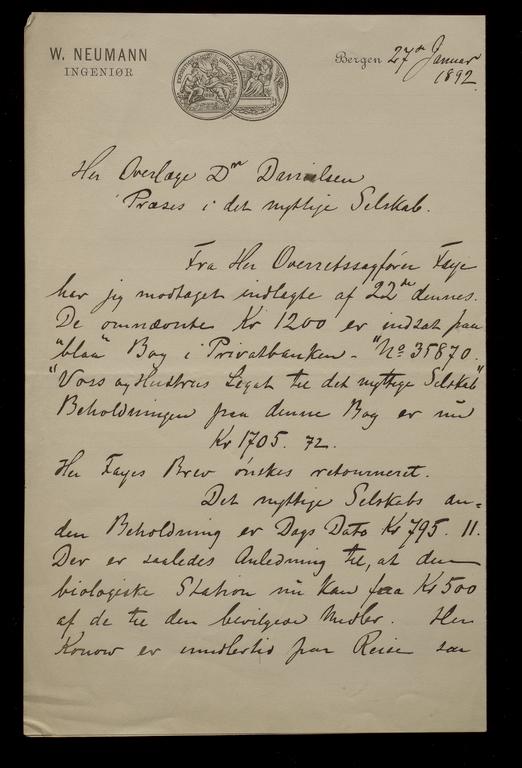 W. NEUMANN
INGENIØR
Bergen 27de Januar
1892.
Her Overlæge Dr Danielsen
Præses i det nyttige Selskab.
Fra Her Overretssagfører Faye
har jeg modtaget indlagte af 22de dennes.
De omnævnte Kr 1200 er indsat paa
"blaa" Bog i Privatbanken - "No 35870.
"Voss og Hustrus Legat til det nyttige Selskab"
Beholdningen paa denne Bog er nu
Kr 1705. 72.
Her Fayes Brev ønskes retourneret.
Det nyttige Selskabs an=
den Beholdning er Dags Dato Kr 795. 11.
Der er saaledes Anledning til, at den
biologiske Station nu kan faa Kr 500
af de til den bevilgede Midler. Her
Konow er imidlertid paa Reise saa